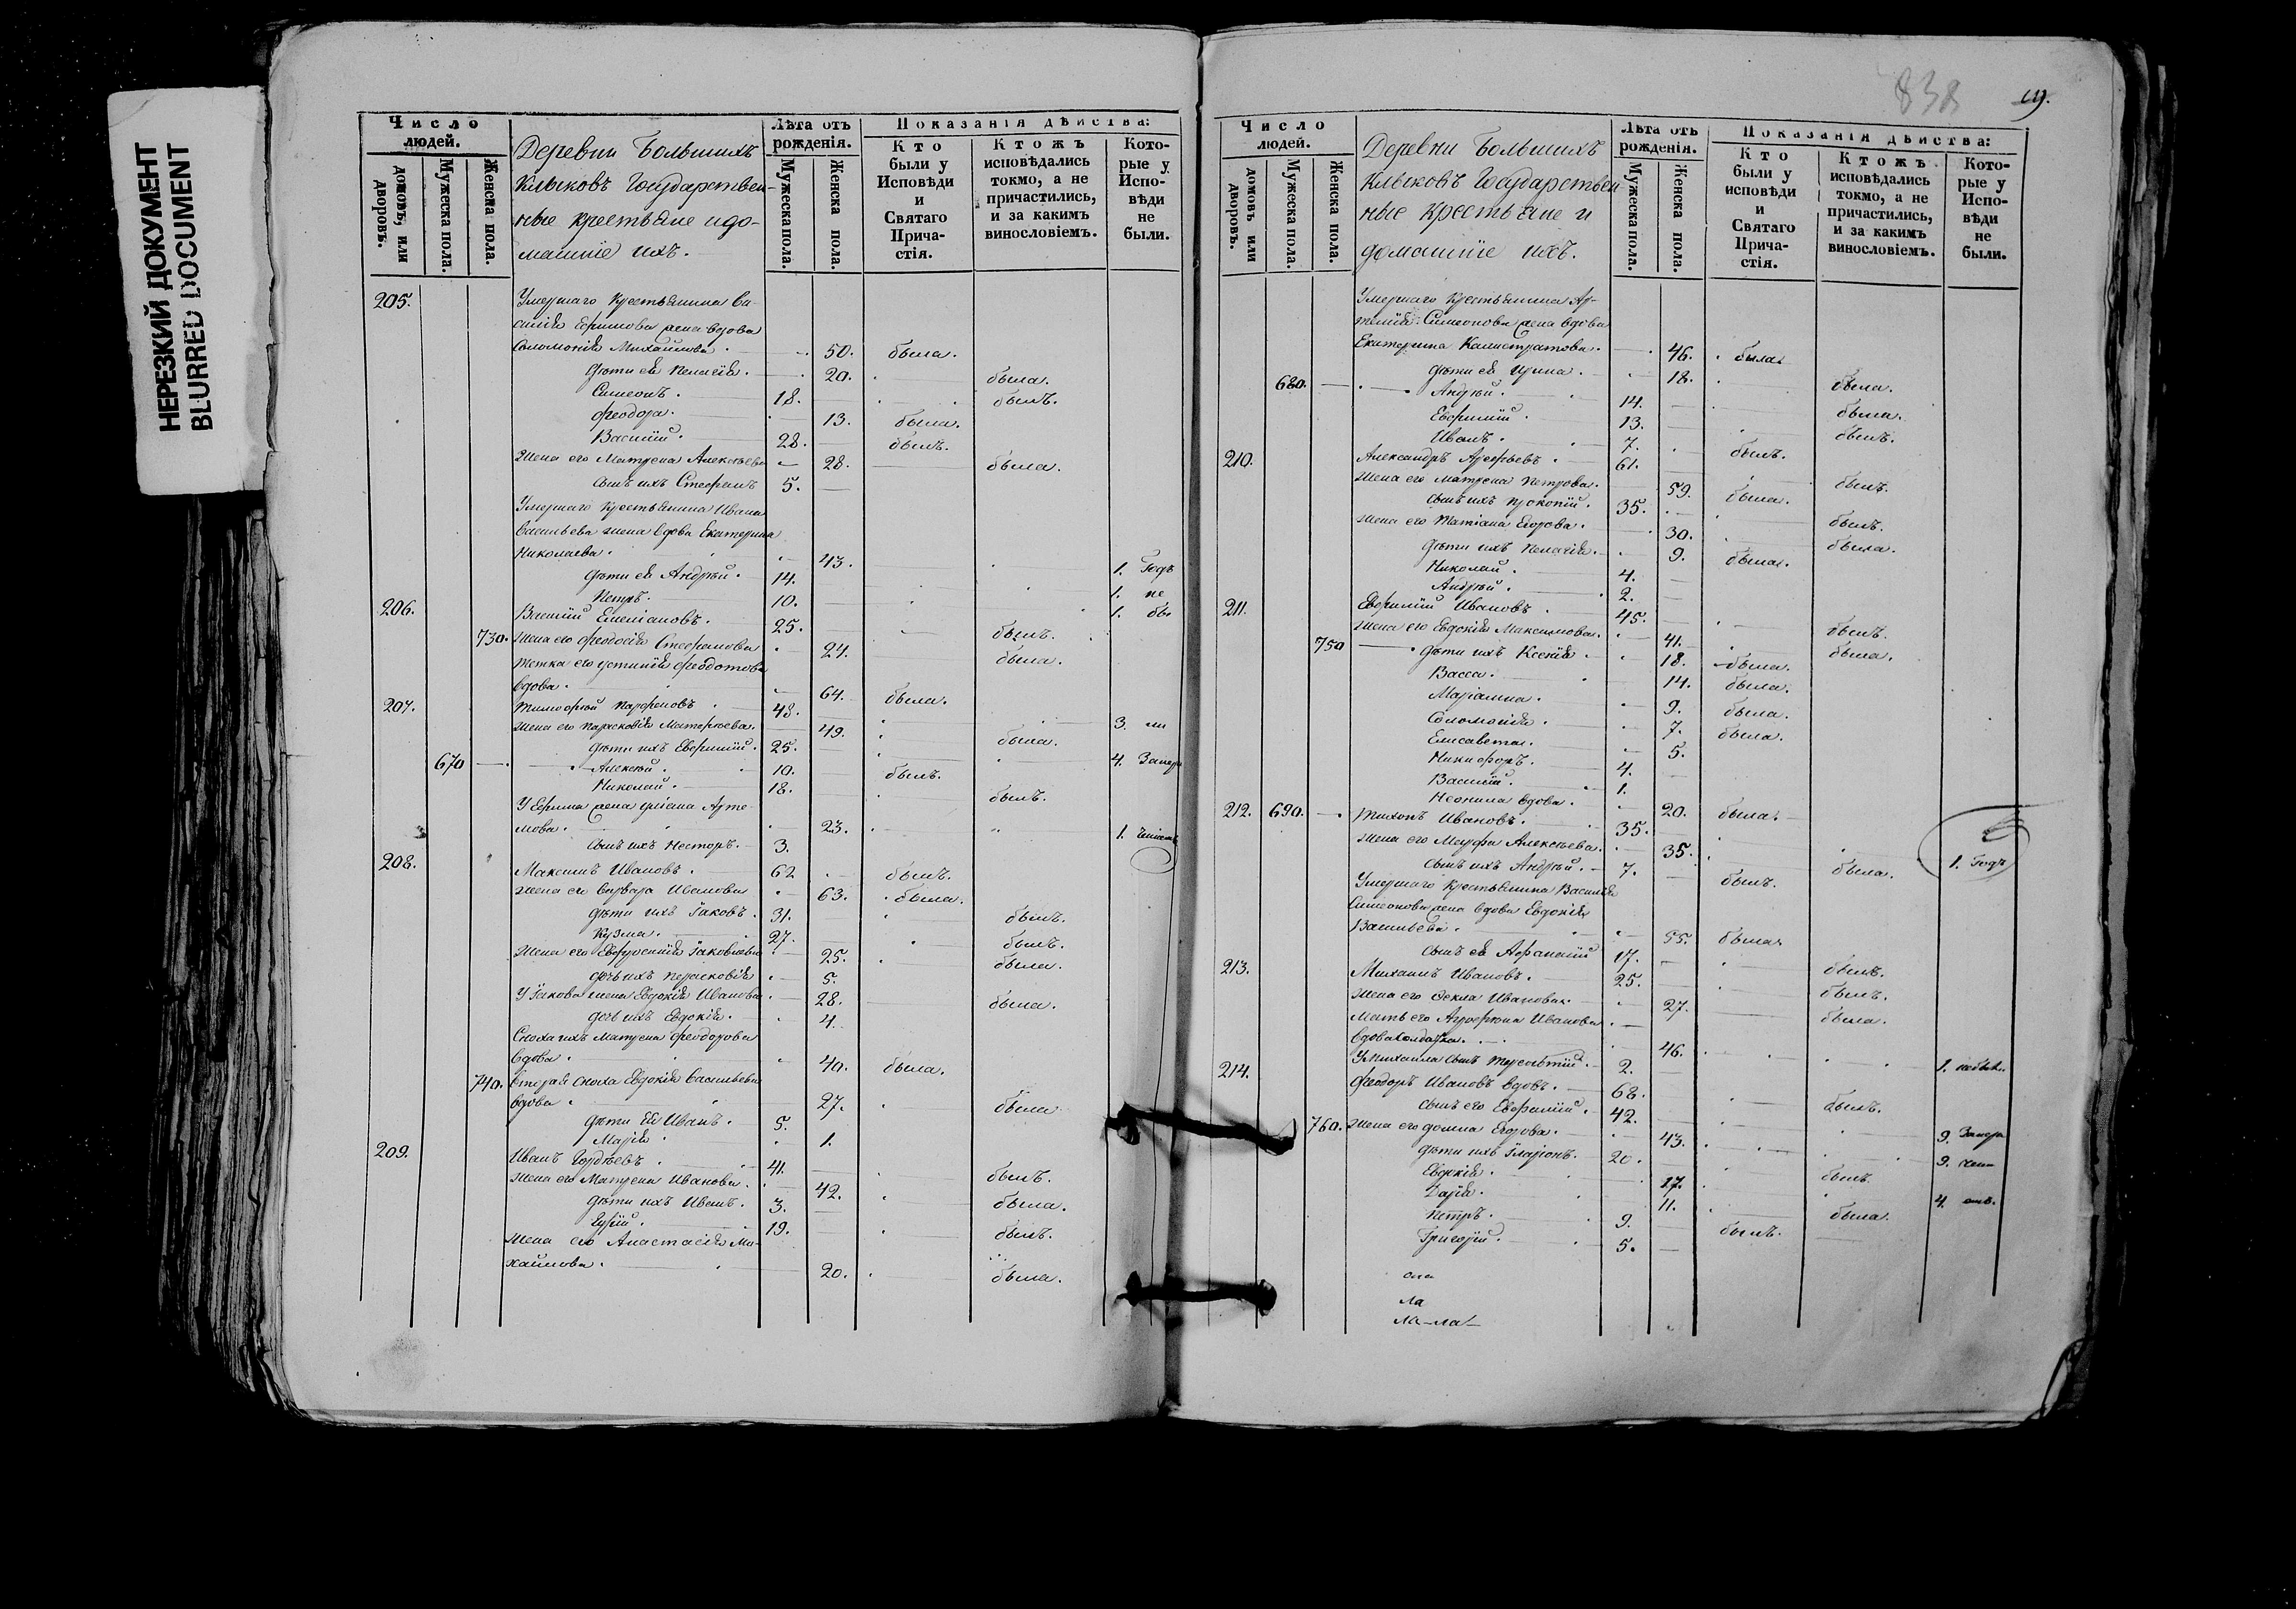 НЕРЕЗКИЙ ДОКУМЕНТ
BLURRED DOCUMENT
Число людей.
домовъ, или дворовъ.
Мужеска пола.
Женска пола.
Деревни Большихъ
Клыковъ Государствен-
ные крестьяне и до-
машніе ихъ.
Лѣта отъ рожденія.
Мужеска пола.
Женска пола.
Показанія дѣйства:
Кто были у Исповѣди и Святаго Прича-стія.
Ктожъ исповѣдались токмо, а не причастились, и за какимъ винословіемъ.
Кото-рые у Испо-вѣди не были.
205. Умершаго крестьянина Ва-
силія Ефимова жена вдова
Соломонія Михайлова. 50. была.
Дѣти ея Пелагія. 20. была.
Симеонъ. 18. былъ.
Феодора. 13. была.
Василій. 28. былъ.
Жена его Матрена Алексѣева 28. была.
Сынъ ихъ Стефанъ 5.
Умершаго крестьянина Ивана
Васильева жена вдова Екатерина
Николаева. 43. 1. Годъ
Дѣти ея Андрей. 14. 1. не
Петръ. 10. 1. бы
206. Василій Емеліановъ. 25. былъ.
730. Жена его Феодосія Стефанова 24. была.
Тетка его Устинія Феодотова
вдова. 64. была.
207. Тимофей Парфеновъ. 48. 3.
Жена его Парасковія Матфеева. 49. была.
Дѣти ихъ Евфимій. 25. 4.
670 Алексѣй. 10. былъ.
Николай. 18. былъ.
У Ефима жена Уліана Арте-
мова. 23. 1.
Сынъ ихъ Несторъ. 3.
208. Максимъ Ивановъ. 62 былъ.
Жена его Варвара Иванова 63. была.
Дѣти ихъ Іаковъ. 31. былъ.
Кузма. 27. былъ.
Жена его Евфросинія Іаковлева 25. была.
Дочь ихъ Парасковія 5.
У Іакова жена Евдокія Иванова 28. была.
Дочь ихъ Евдокія. 4.
Сноха ихъ Матрена Феодорова
вдова. 40. была.
740. Вторая сноха Евдокія Васильева
вдова. 27. была
Дѣти ея Иванъ. 5.
Марія. 1.
209. Иванъ Гордѣевъ. 41. былъ.
Жена его Матрена Иванова. 42. была.
Дѣти ихъ Иванъ. 3.
Гурій. 19. былъ.
Жена его Анастасія Ми-
хайлова. 20. была.
838
19.
Число людей.
домовъ или дворовъ.
Мужеска пола.
Женска пола.
Деревни Большихъ
Клыковъ Государствен-
ные крестьяне и
домашніе ихъ.
Лѣта отъ рожденія.
Мужеска пола.
Женска пола.
Показанія дѣйства:
Кто были у исповѣди и Святаго Прича-стія.
Ктожъ исповѣдались токмо, а не причастились, и за какимъ винословіемъ.
Кото-рые у Испо-вѣди не были.
Умершаго крестьянина Ар-
темія Симеонова жена вдова
Екатерина Калистратова. 46. была.
Дѣти ея Ирина. 18. была.
680. Андрей. 14. была.
Евфимій. 13. былъ.
Иванъ. 7. былъ.
210. Александръ Арефьевъ. 61. былъ.
Жена его Матрена Петрова. 59. была.
Сынъ ихъ Прокопій. 35. былъ.
Жена его Татіана Егорова. 30. была.
Дѣти ихъ Пелагія. 9. была.
Николай. 4.
Андрей. 2.
211. Евфимій Ивановъ. 45. былъ.
Жена его Евдокія Максимова. 41. была.
750 Дѣти ихъ Ксенія. 18. была.
Васса. 14. была.
Маріамна. 9. была.
Соломонія. 7. была.
Елисавета. 5.
Никифоръ. 4.
Василій. 1.
Неонила вдова. 20. была.
212. 690. Тихонъ Ивановъ. 35. 1. Годъ
Жена его Марфа Алексѣева. 35. была.
Сынъ ихъ Андрей. 7. былъ.
Умершаго крестьянина Василія
Симеонова жена вдова Евдокія
Васильева. 55. была.
Сынъ ея Афанасій 17. былъ.
213. Михаилъ Ивановъ. 25. былъ.
Жена его Фекла Иванова. 27. была.
Мать его Агрофена Иванова
вдова солдатка. 46. 1.
У Михаила сынъ Терентій. 2.
214. Феодоръ Ивановъ вдовъ. 68. былъ.
Сынъ его Евфимій. 42. 9.
760. Жена его Домна Егорова. 43. 9.
Дѣти ихъ Иларіонъ. 20. былъ.
Евдокія. 17. 4.
Дарія. 11. была.
Петръ. 9. былъ.
Григорій. 5.